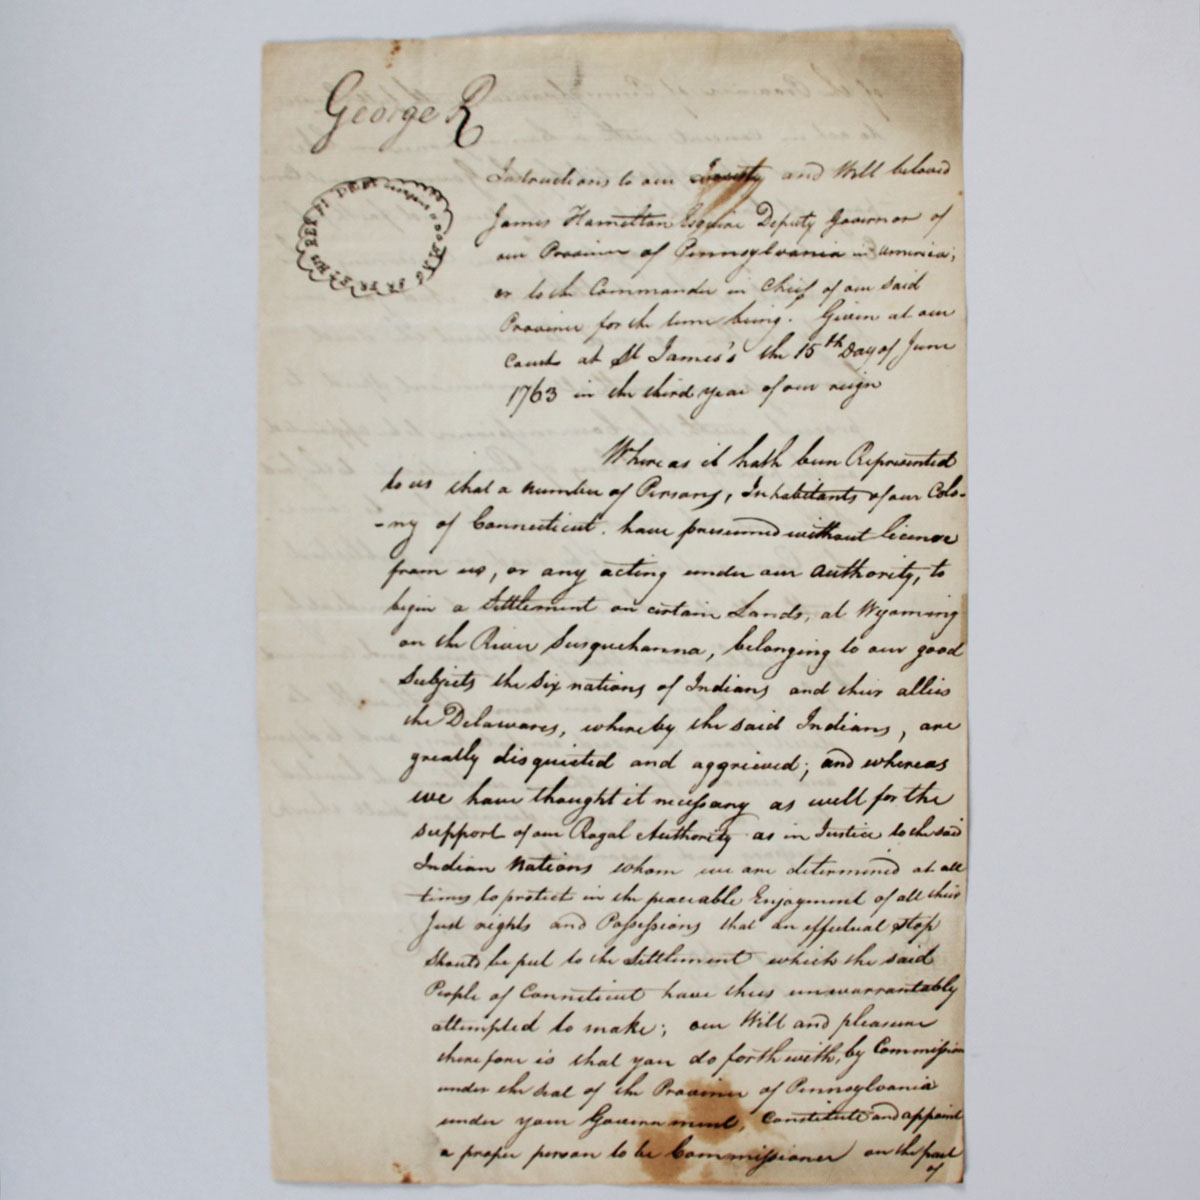 George R
Instructions to our Trusty and Well beloved
James Hamilton Esquire Deputy Governor of
our Province of Pennsylvania in America;
or to the Commander in Chief of our said
Province for the time being. Given at our
Court at St James's the 15th Day of June
1763 in the third year of our reign
Whereas it hath been Represented
to us that a number of Persons, Inhabitants of our Colo-
-ny of Connecticut. have presumed without licence
from us, or any acting under our Authority, to
begin a Settlement on certain Lands, at Wyoming
on the River Susquehanna, belonging to our good
Subjects the Six nations of Indians and their allies
the Delawares, whereby the said Indians, are
greatly disquieted and aggrieved; and whereas
we have thought it necessary as well for the
support of our Royal Authority as in Justice to the said
Indian Nations whom we are determined at all
times to protect in the peaceable Enjoyment of all their
Just rights and Possessions that an effectual stop
should be put to the Settlement which the said
People of Connecticut have thus unwarrantably
attempted to make; our Will and pleasure
therefore is that you do forthwith, by Commission
under the seal of the Province of Pennsylvania
under your Government, Constitute and appoint
a proper person to be Commissioner on the part
of